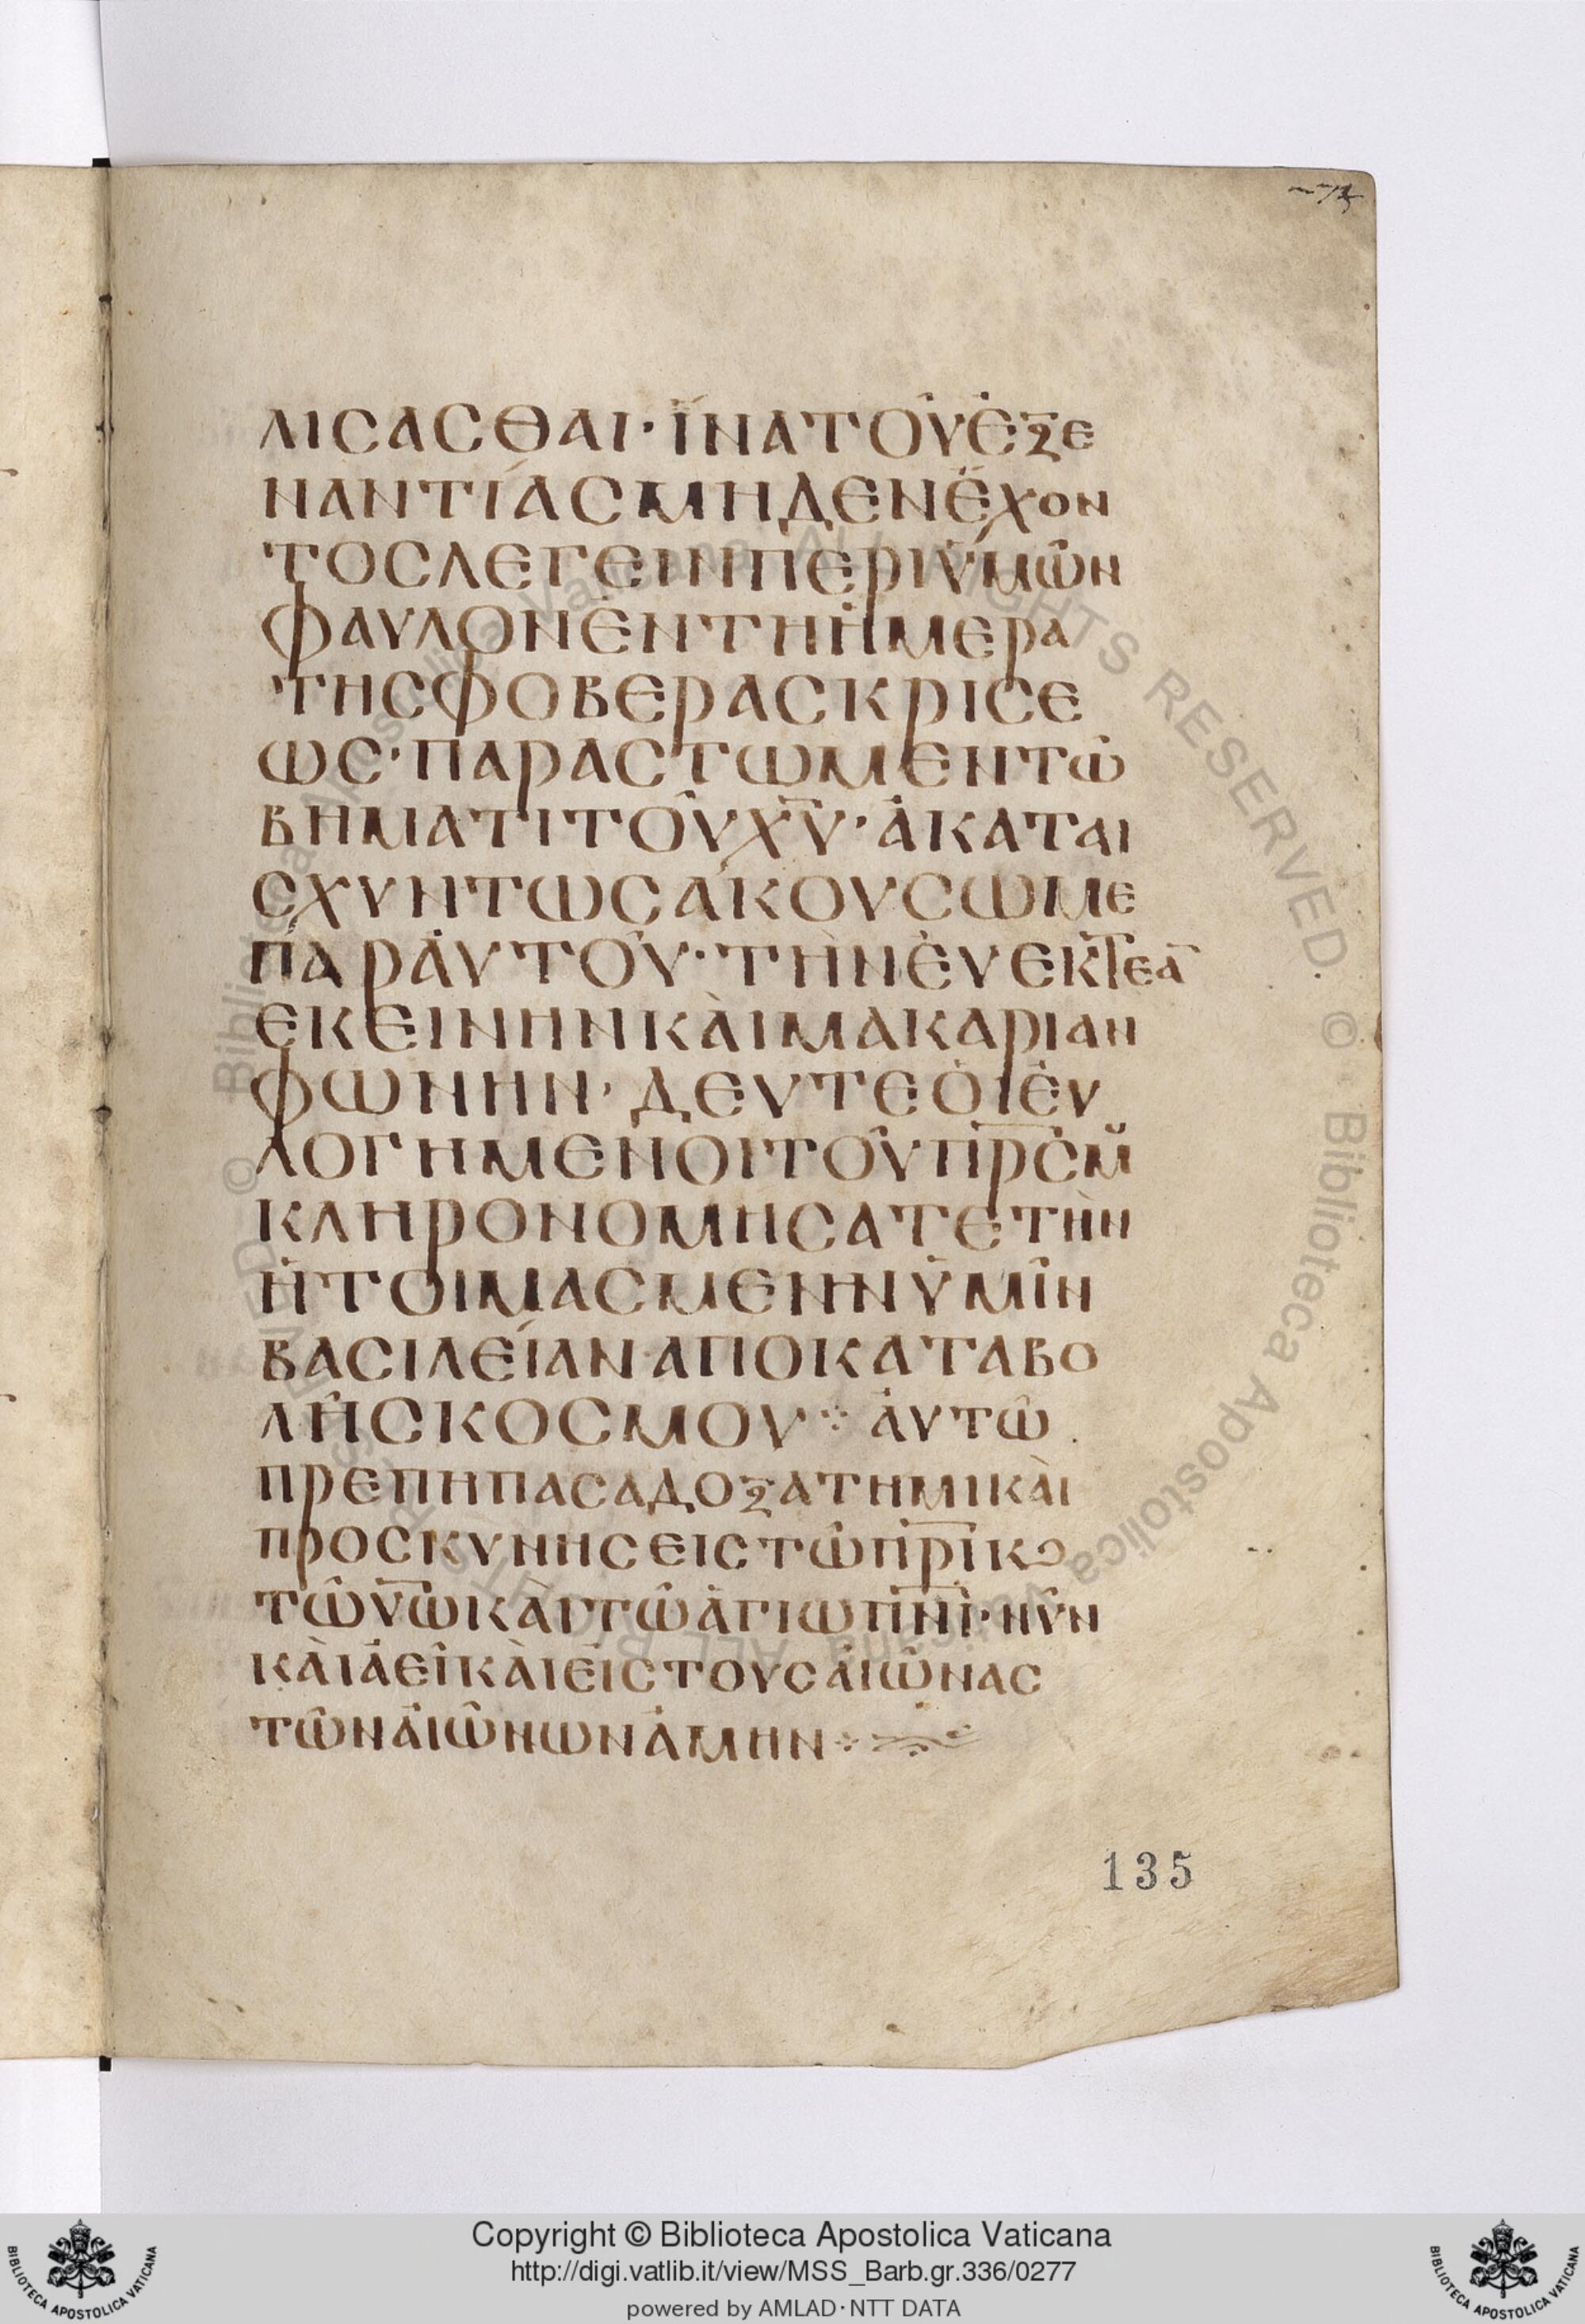 ΛΙCΑCΘΑΙ· ΪΝΑΤΟΥ͂ἘΞΕ
ΝΑΝΤΊΑC ΜΗΔΕΝἜΧΟΝ
ΤΟCΛΕΓΕΙΝΠΕΡΙΫΜΩ͂Ν
ΦΑΥΛΟΝἘΝΤΗἩΜΕΡΑ
ΤΗCΦΟΒΕΡΑCΚΡΙCΕ
ΩC· ΠΑΡΑCΤΩΜΕΝΤΩ͂
ΒΗΜΑΤΙΤΟΥ͂Χ̅Υ̅· ἈΚΑΤΑΙ
CΧΥΝΤΩCἈΚΟΥCΩΜΕ
ΠΑΡἈΥΤΟΥ͂· ΤῊΝἘΥΕΚΤΕΑ̅
ΕΚΕΙΝΗΝΚᾺΙΜΑΚΑΡΙΑΝ
ΦΩΝΗΝ· ΔΕΥΤΕὉΙἘΥ
ΛΟΓΗΜΕΝΟΙΤΟΥ͂Π̅Ρ̅C̅Μ̆
ΚΛΗΡΟΝΟΜΗCΑΤΕΤῊΝ
ἩΤΟΙΜΑCΜΕΝΗΝὙΜΙ͂Ν
ΒΑCΙΛΕΊΑΝ·ΑΠΟΚΑΤΑΒΟ
ΛΗ͂CΚΟCΜΟΥ⁘ ἈΥΤΩ͂
ΠΡΕΠΗΠΑCΑΔΟΞΑΤΗΜΙΚᾺΙ
ΠΡΟCΚΥΝΗCΕΙCΤΩ͂Π̅Ρ̅Ι̅ΚϽ
ΤΩ͂Υ̅Ω̅ΚᾺΙΤΩ͂ἉΓΙΩΠ̅Ν̅Ι̅· ΝΥ͂Ν
ΚᾺΙἈΕῚΚᾺΙἘΙCΤΟΥCἈΙΩ͂ΝΑC
ΤΩ͂ΝἈΙΩ͂ΝΩΝἈΜΗΝ⁘
135
Copyright © Biblioteca Apostolica Vaticana
http://digi.vatlib.it/view/MSS_Barb.gr.336/0277
powered by AMLAD·NTT DATA